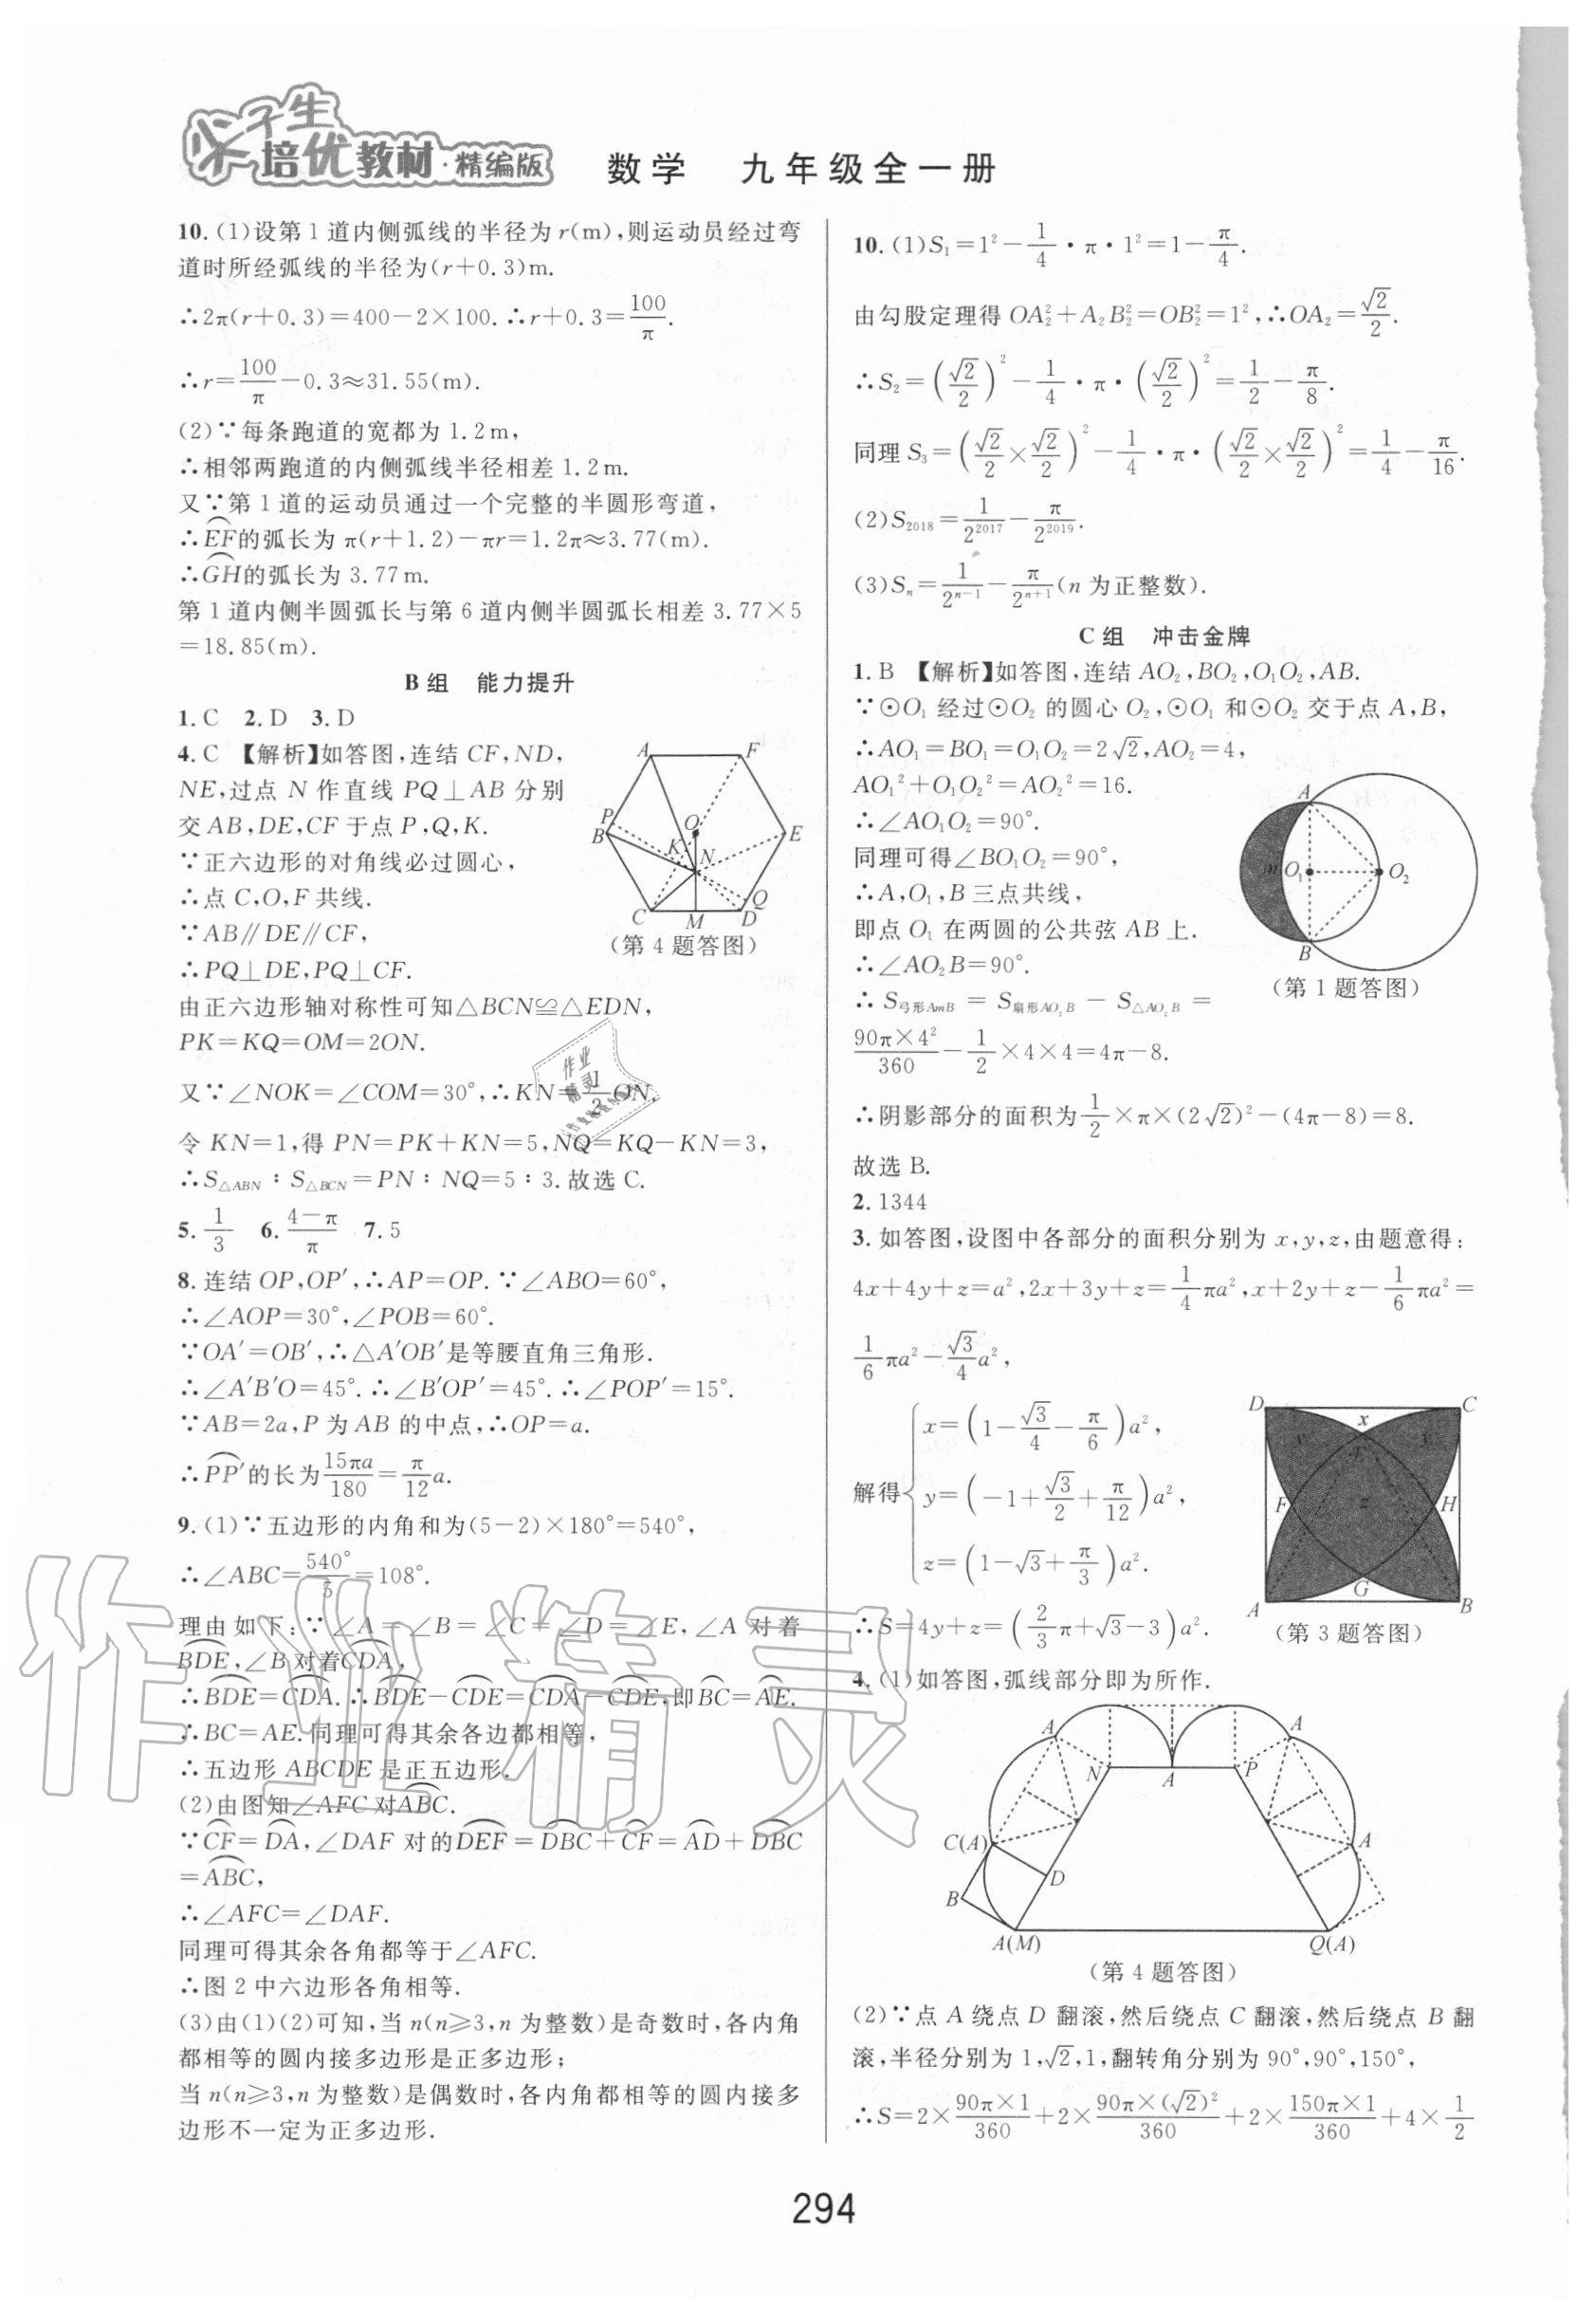 尖子生
培优教材·精编版 数学 九年级全一册
10. (1)设第1道内侧弧线的半径为r(m),则运动员经过弯
道时所经弧线的半径为(r+0.3)m.
∴2π(r+0.3)=400-2×100.∴r+0.3=100/π.
∴r=100/π-0.3≈31.55(m).
(2)∵每条跑道的宽都为1.2m,
∴相邻两跑道的内侧弧线半径相差1.2m.
又∵第1道的运动员通过一个完整的半圆形弯道,
∴⌒EF的弧长为π(r+1.2)-πr=1.2π≈3.77(m).
∴⌒GH的弧长为3.77m.
第1道内侧半圆弧长与第6道内侧半圆弧长相差3.77×5
=18.85(m).
B组 能力提升
1. C 2. D 3. D
4. C 【解析】如答图,连结CF,ND,
NE,过点N作直线PQ⊥AB分别
交AB,DE,CF于点P,Q,K.
∵正六边形的对角线必过圆心,
∴点C,O,F共线.
∵AB∥DE∥CF,
∴PQ⊥DE,PQ⊥CF.
A F P B O K N E Q C M D
(第4题答图)
由正六边形轴对称性可知△BCN≌△EDN,
PK=KQ=OM=2ON.
又∵∠NOK=∠COM=30°,∴KN=1/2 ON.
令KN=1,得PN=PK+KN=5,NQ=KQ-KN=3,
∴S△ABN∶S△BCN=PN∶NQ=5∶3.故选C.
5. 1/3 6. (4-π)/π 7. 5
8. 连结OP,OP′,∴AP=OP.∵∠ABO=60°,
∴∠AOP=30°,∠POB=60°.
∵OA′=OB′,∴△A′OB′是等腰直角三角形.
∴∠A′B′O=45°.∴∠B′OP′=45°.∴∠POP′=15°.
∵AB=2a,P为AB的中点,∴OP=a.
∴⌒PP′的长为15πa/180=π/12 a.
9. (1)∵五边形的内角和为(5-2)×180°=540°,
∴∠ABC=540°/5=108°.
理由如下:∵∠A=∠B=∠C=∠D=∠E,∠A对着
⌒BDE,∠B对着⌒CDA,
∴⌒BDE=⌒CDA.∴⌒BDE-⌒CDE=⌒CDA-⌒CDE,即⌒BC=⌒AE.
∴BC=AE.同理可得其余各边都相等,
∴五边形ABCDE是正五边形.
(2)由图知∠AFC对⌒ABC.
∵⌒CF=⌒DA,∠DAF对的⌒DEF=⌒DBC+⌒CF=⌒AD+⌒DBC
=⌒ABC,
∴∠AFC=∠DAF.
同理可得其余各角都等于∠AFC.
∴图2中六边形各角相等.
(3)由(1)(2)可知,当n(n≥3,n为整数)是奇数时,各内角
都相等的圆内接多边形是正多边形;
当n(n≥3,n为整数)是偶数时,各内角都相等的圆内接多
边形不一定为正多边形.
10. (1)S₁=1²-1/4·π·1²=1-π/4.
由勾股定理得OA₂²+A₂B₂²=OB₂²=1²,∴OA₂=√2/2.
∴S₂=(√2/2)²-1/4·π·(√2/2)²=1/2-π/8.
同理S₃=(√2/2×√2/2)²-1/4·π·(√2/2×√2/2)²=1/4-π/16.
(2)S₂₀₁₈=1/2²⁰¹⁷-π/2²⁰¹⁹.
(3)Sₙ=1/2ⁿ⁻¹-π/2ⁿ⁺¹(n为正整数).
C组 冲击金牌
1. B 【解析】如答图,连结AO₂,BO₂,O₁O₂,AB.
∵⊙O₁经过⊙O₂的圆心O₂,⊙O₁和⊙O₂交于点A,B,
∴AO₁=BO₁=O₁O₂=2√2,AO₂=4,
AO₁²+O₁O₂²=AO₂²=16.
∴∠AO₁O₂=90°.
同理可得∠BO₁O₂=90°,
∴A,O₁,B三点共线,
即点O₁在两圆的公共弦AB上.
∴∠AO₂B=90°.
A m O₁ O₂ B
(第1题答图)
∴S弓形AmB=S扇形AO₂B-S△AO₂B=
90π×4²/360-1/2×4×4=4π-8.
∴阴影部分的面积为1/2×π×(2√2)²-(4π-8)=8.
故选B.
2. 1344
3. 如答图,设图中各部分的面积分别为x,y,z,由题意得:
4x+4y+z=a²,2x+3y+z=1/4πa²,x+2y+z-1/6πa²=
1/6πa²-√3/4a²,
解得{x=(1-√3/4-π/6)a²,
y=(-1+√3/2+π/12)a²,
z=(1-√3+π/3)a².
D C x y y E F z H G A B
∴S=4y+z=(2/3π+√3-3)a².
(第3题答图)
4. (1)如答图,弧线部分即为所作.
A A N A P C(A) A D B A(M) Q(A)
(第4题答图)
(2)∵点A绕点D翻滚,然后绕点C翻滚,然后绕点B翻
滚,半径分别为1,√2,1,翻转角分别为90°,90°,150°,
∴S=2×90π×1/360+2×90π×(√2)²/360+2×150π×1/360+4×1/2
294
作业精灵
作业精灵